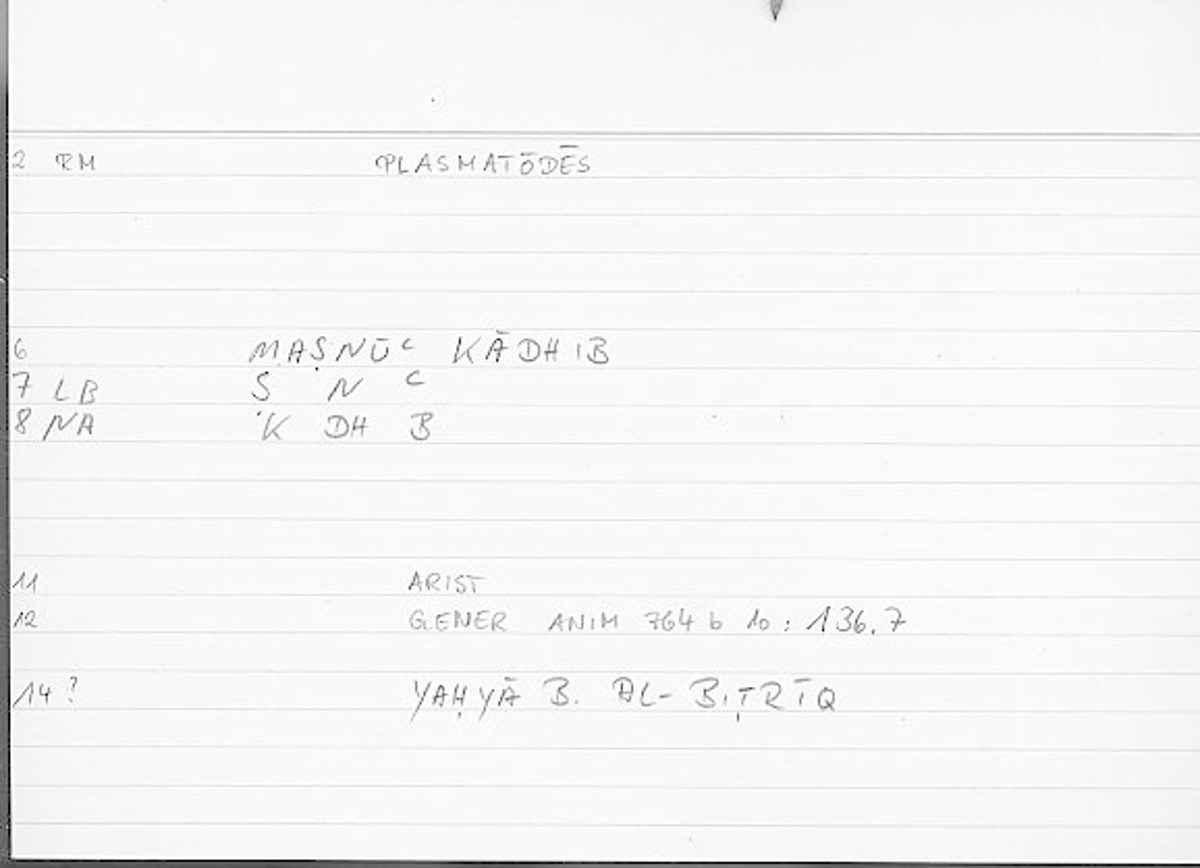 2 RM PLASMATŌDĒS
6 MAṢNŪʿ KĀDHIB
7 LB Ṣ N ʿ
8 NA K DH B
11 ARIST
12 GENER ANIM 764 b 10 : 136.7
14 ? YAḤYĀ B. AL-BIṬRĪQ